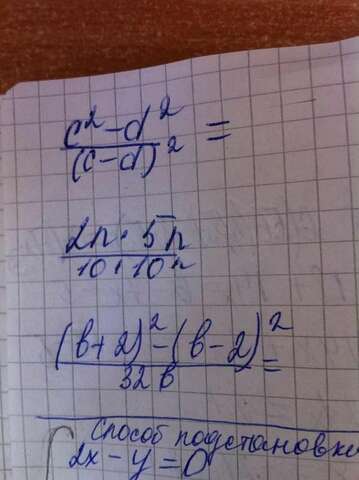 c² - d² / (c-d)² =
2n · 5n / 10 · 10ⁿ
(b+2)² - (b-2)² / 32b =
Способ подстановки
2x - y = 0